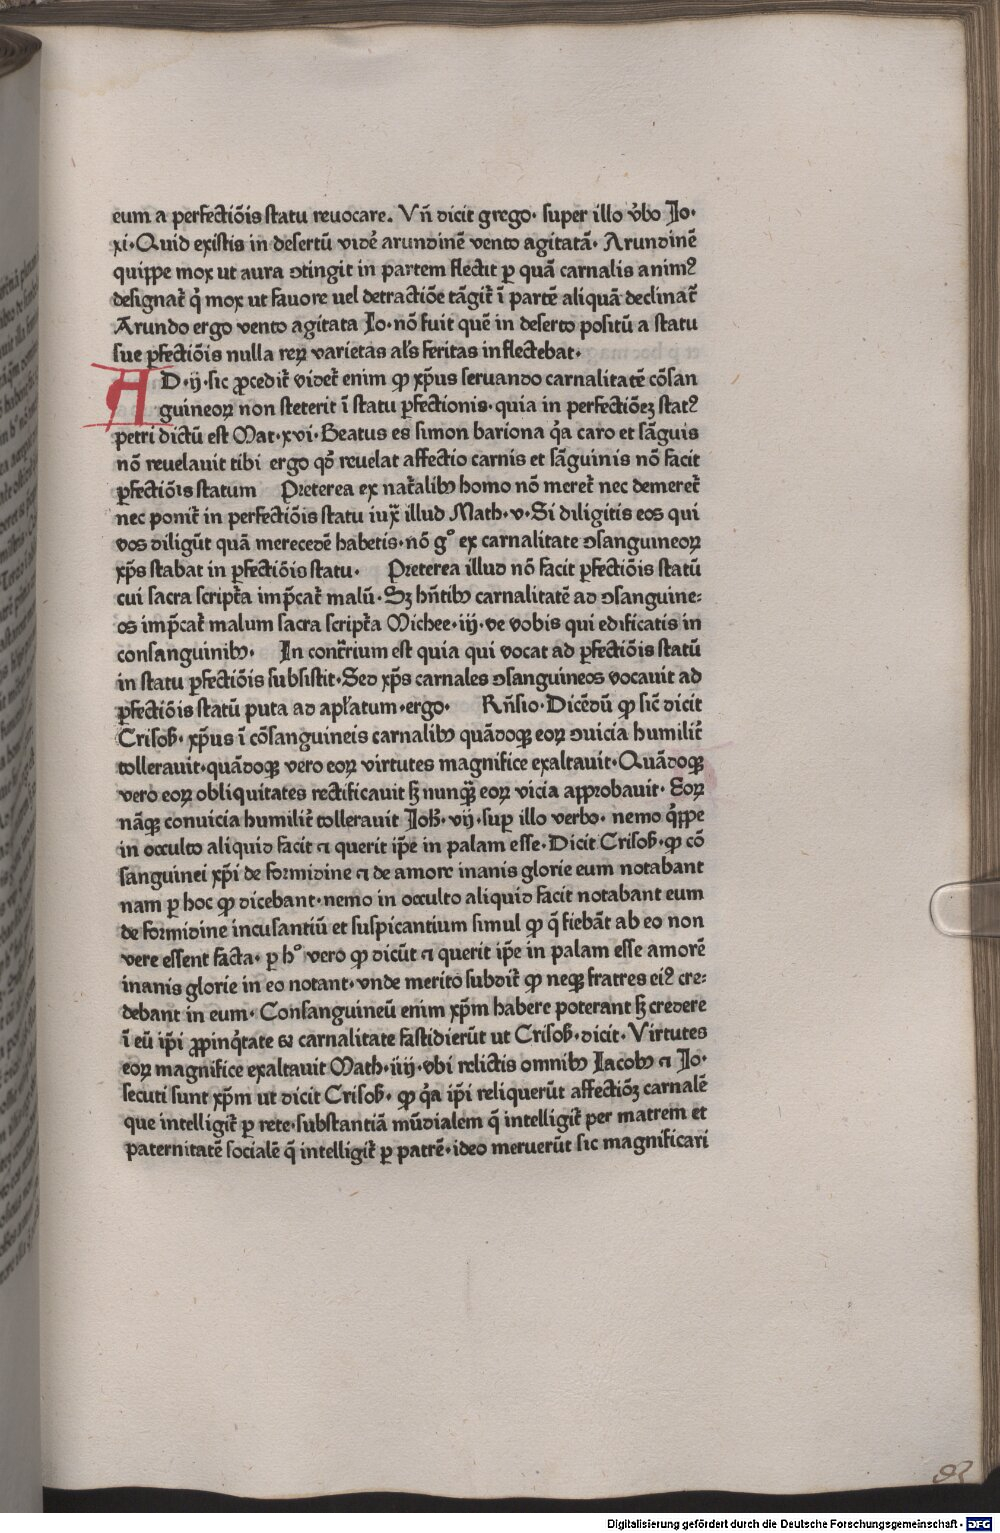 eum a perfectiõis statu reuocare. Vñ dicit grego· super illo v̾bo Jo·
xi·Quid existis in desertũ videꝛ̃ arundinẽ vento agitatã· Arundinẽ
quippe mox ut aura ↄtingit in partem flectit ꝑ quã carnalis animꝰ
designat᷑ q̇ mox ut fauore uel detractiõe tãgit᷑ ĩ partẽ aliquã declinat᷑
Arundo ergo vento agitata Jo·nõ fuit quẽ in deserto positũ a statu
sue ꝑfectiõis nulla reꝝ varietas al̛s feritas inflectebat·
AD·ij·sic ꝓcedit᷑ videt᷑ enim ꝙ xp̃us seruando carnalitatẽ cõsan
guineoꝝ non steterit ĩ statu ꝑfectionis·quia in perfectiõeʒ statꝰ
petri dictũ est Mat·xvi·Beatus es simon bariona q̇a caro et sãguis
nõ reuelauit tibi ergo qð reuelat affectio carnis et sãguinis nõ facit
ꝑfectiõis statum Preterea ex nat᷑alibꝰ homo nõ meret᷑ nec demeret᷑
nec ponit᷑ in perfectiõis statu iuꝯ̃ illud Math·v·Si diligitis eos qui
vos diligũt quã merecedẽ habetis·nõ g° ex carnalitate ↄsanguineoꝝ
xp̃s stabat in ꝑfectiõis statu· Preterea illud nõ facit ꝑfectiõis statũ
cui sacra script᷑a imp̃cat᷑ malũ·Sʒ hñtibꝰ carnalitatẽ ad ↄsanguine⸗
os imp̃cat᷑ malum sacra script᷑a Michee·iij·ve vobis qui edificatis in
consanguinibꝰ· In cont᷑rium est quia qui vocat ad ꝑfectiõis statũ
in statu ꝑfectiõis subsistit·Sed xp̃s carnales ↄsanguineos vocauit ad
ꝑfectiõis statũ puta ad apl̃atum·ergo· Rñsio·Dicẽdũ ꝙ sic᷑ dicit
Crisoƀ·xp̃us ĩ cõsanguineis carnalibꝰ quãdoqꝫ eoꝝ ↄuicia humilit᷑
tollerauit·quãdoqꝫ vero eoꝝ virtutes magnifice exaltauit·Quãdoqꝫ
vero eoꝝ obliquitates rectificauit sʒ nunqꝫ̃ eoꝝ vicia approbauit· Eoꝝ
nãqꝫ conuicia humilit᷑ tollerauit Joƀ· vij·suꝑ illo verbo· nemo q̇ppe
in occulto aliquid facit ⁊ querit ip̃e in palam esse·Dicit Crisoƀ·ꝙ cõ
sanguinei xp̃i de formidine ⁊ de amore inanis glorie eum notabant
nam ꝑ hoc ꝙ dicebant·nemo in occulto aliquid facit notabant eum
de formidine incusantiũ et suspicantium simul ꝙ q̃ fiebãt ab eo non
vere essent facta· ꝑ h° vero ꝙ dicũt ⁊ querit ip̃e in palam esse amorẽ
inanis glorie in eo notant·vnde merito subdit᷑ ꝙ neqꝫ fratres eiꝰ cre⸗
debant in eum· Consanguineũ enim xp̃m habere poterant sʒ credere
ĩ eũ ip̃i ꝓpinq̇tate & carnalitate fastidierũt ut Crisoƀ·dicit· Virtutes
eoꝝ magnifice exaltauit Math·iiij·vbi relictis omnibꝰ Iacobꝰ ⁊ Jo·
secuti sunt xp̃m ut dicit Crisoƀ· ꝙ q̇a ip̃i reliquerũt affectiõʒ carnalẽ
que intelligit᷑ ꝑ rete·substantiã mũdialem q̃ intelligit᷑ per matrem et
paternitatẽ socialẽ q̃ intelligit᷑ ꝑ patrẽ·ideo meruerũt sic magnificari
93
Digitalisierung gefördert durch die Deutsche Forschungsgemeinschaft - DFG